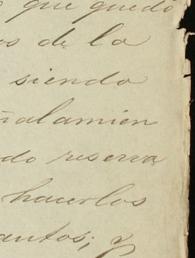 que quedó
es de la
siendo
ñalamien
do reserva
hacerlos
antos; y